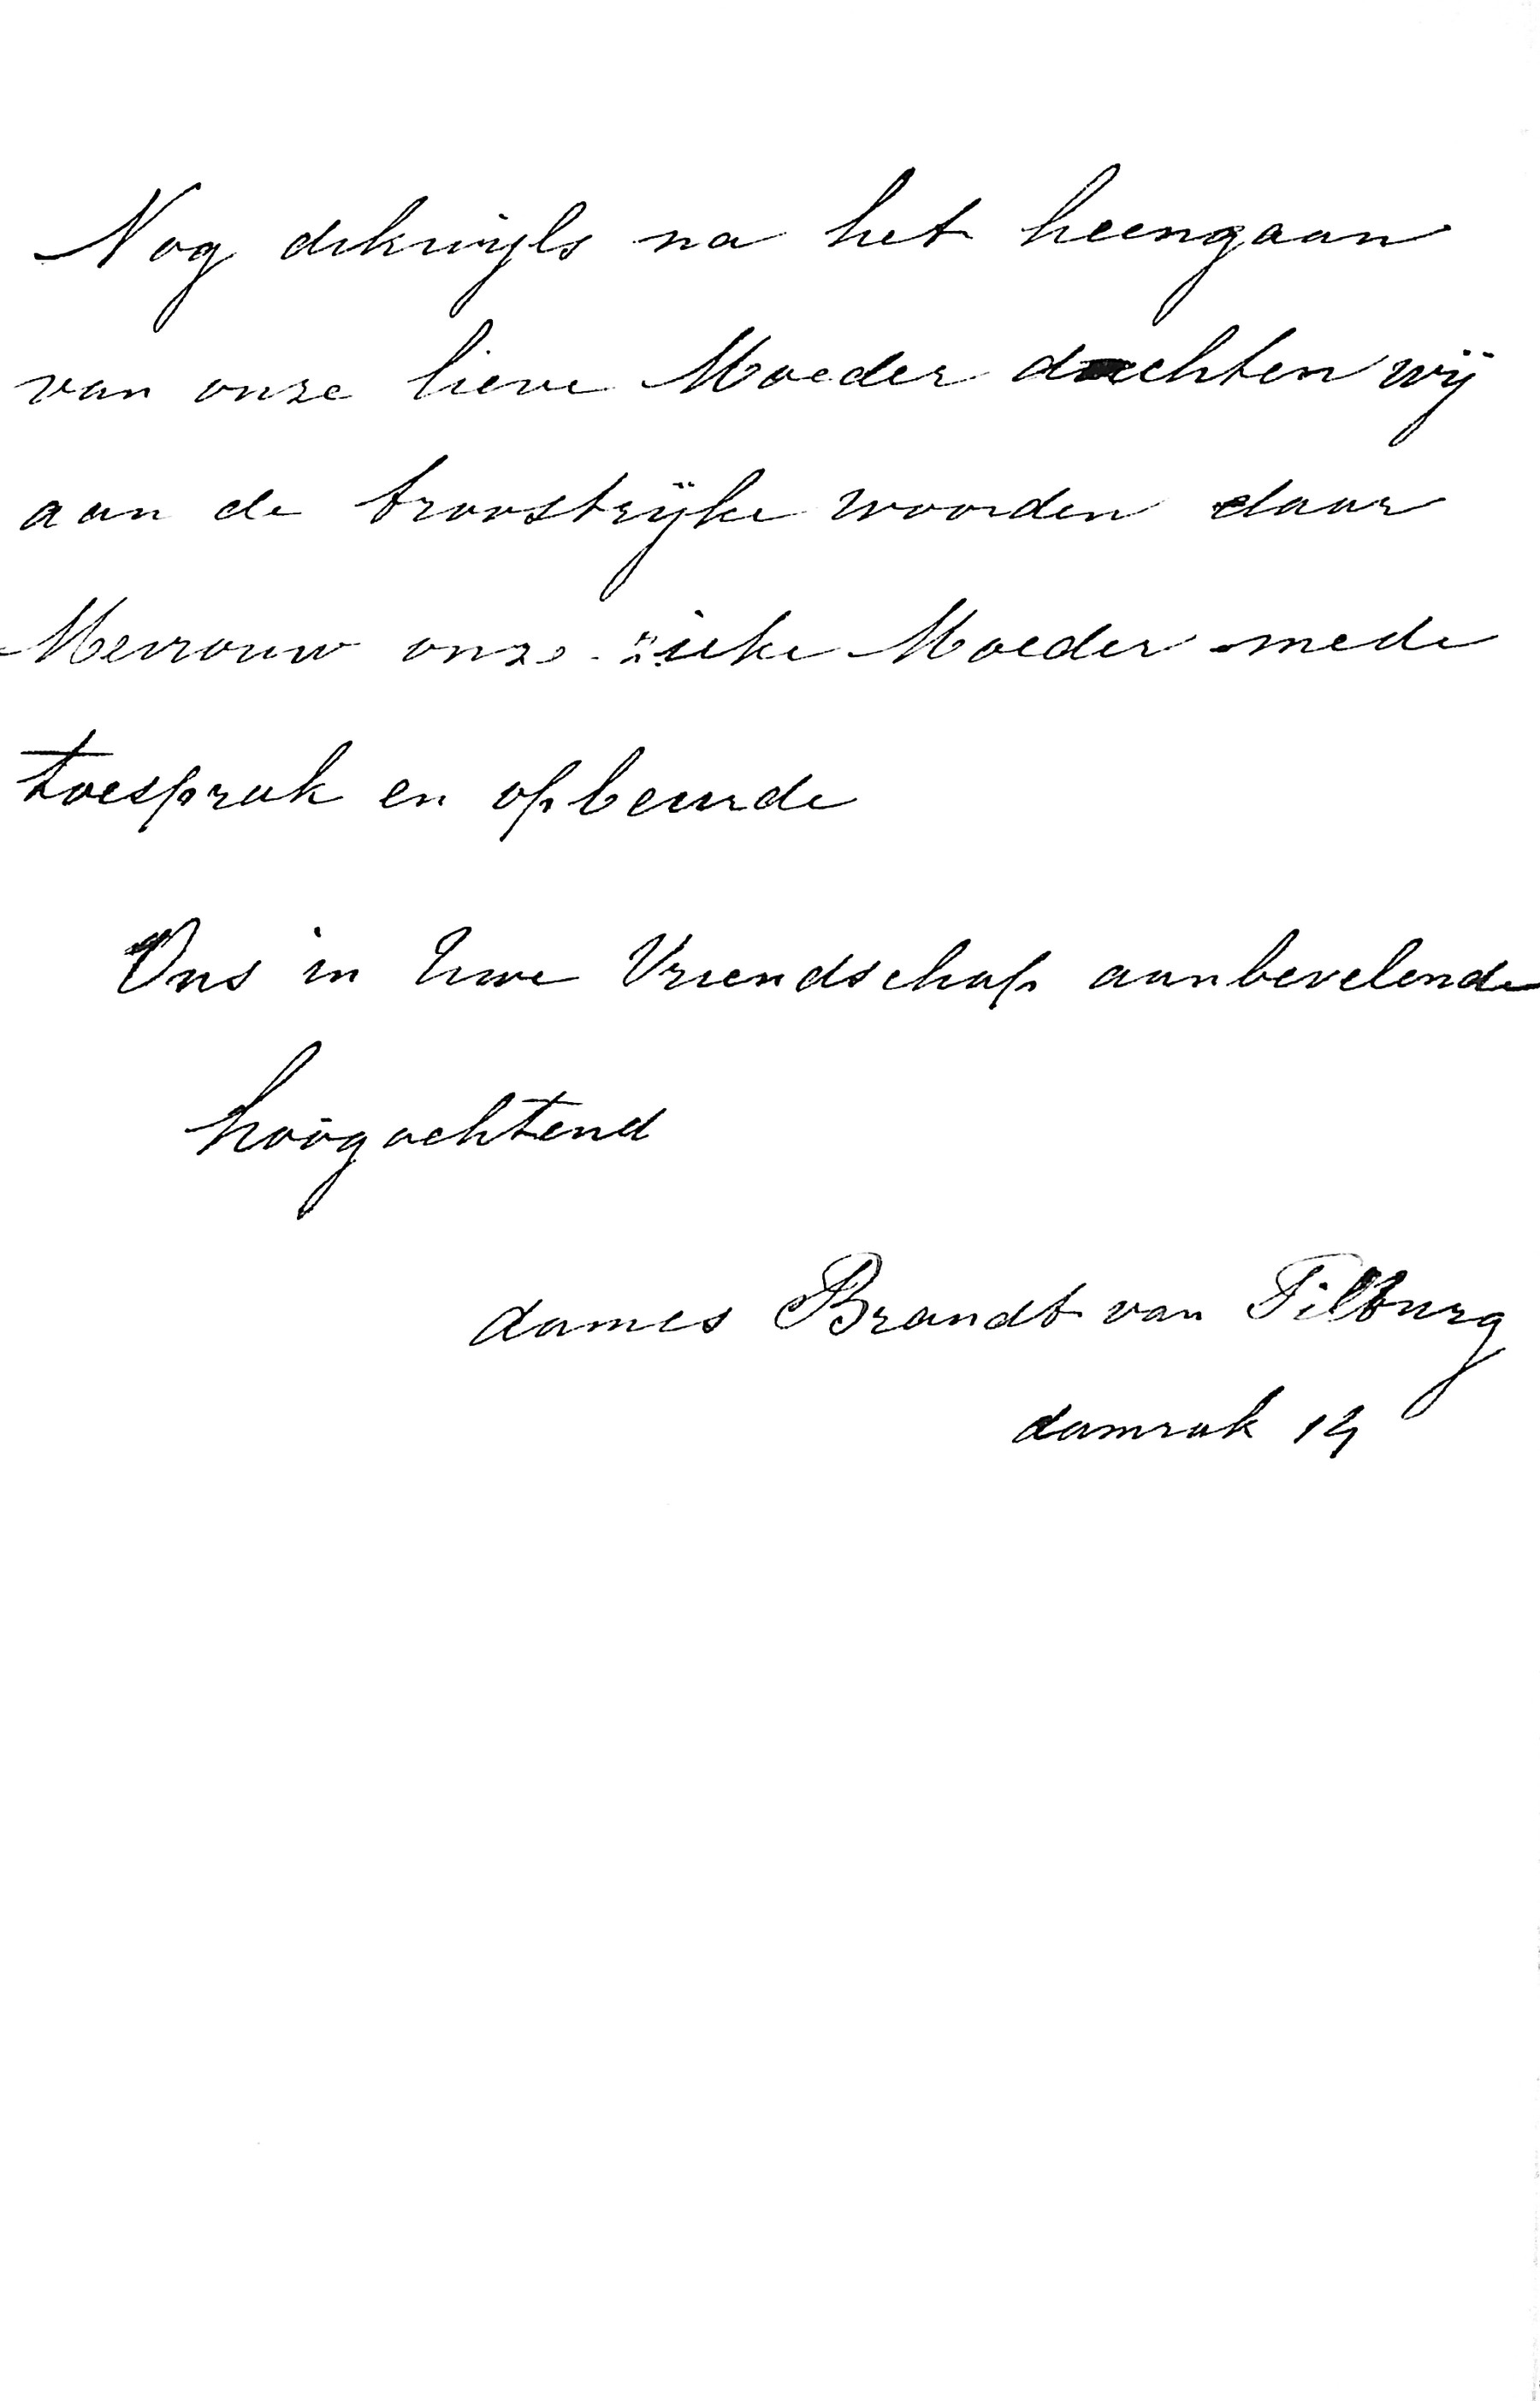 Nog dikwijls na het heengaan
van onze lieve Moeder dachten wij
aan de troostrijke woorden daar
Mevrouw onze zieke Moeder mede
toesprak en opbeurde
Ons in Uwe Vriendschap aanbevelende
hoogachtend
dames Brandt van Tilburg
damrak 14